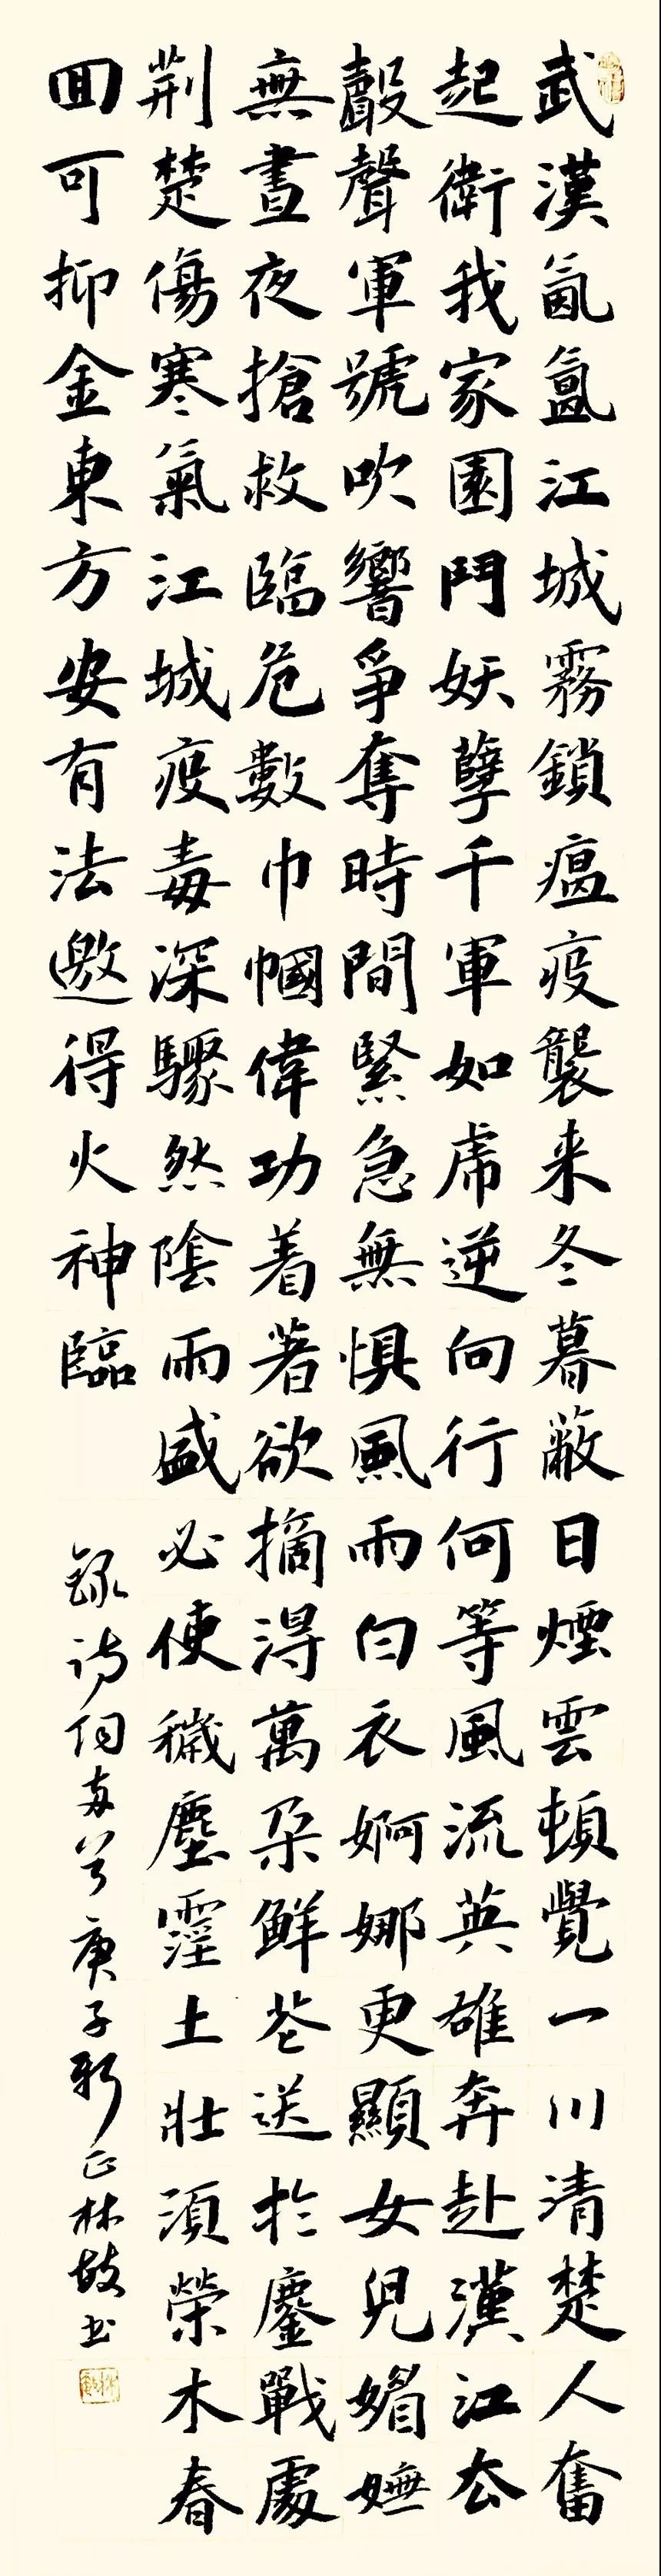 武漢氤氲江城霧鎖瘟疫襲来冬暮蔽日煙雲頓覺一川清楚人奮
起衛我家園鬥妖孽千軍如虎逆向行何等風流英雄奔赴漢江厺
聲聲軍號吹響爭奪時間緊急無惧風雨白衣婀娜更顯女兒媚嫵
無晝夜搶救臨危數巾幗偉功着著欲摘得萬朵鮮花送於鏖戰處
荆楚傷寒氣江城疫毒深驟然陰雨盛必使穢塵霪土壯須榮木春
囬可抑金東方安有法邀得火神臨
錄詩詞两首庚子新正林书